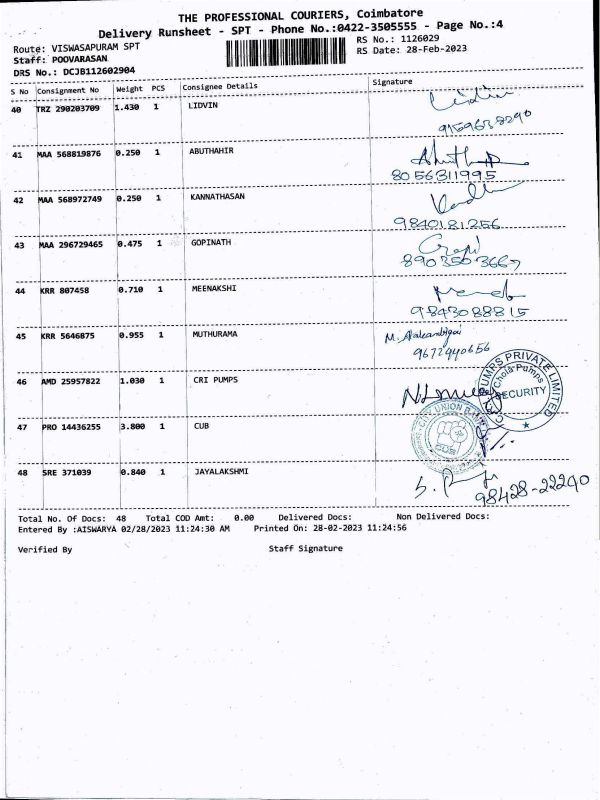 THE PROFESSIONAL COURIERS, Coimbatore
Delivery Runsheet - SPT - Phone No.:0422-3505555 - Page No.:4
Route: VISWASAPURAM SPT RS No.: 1126029
Staff: POOVARASAN RS Date: 28-Feb-2023
DRS No.: DCJB112602904
S No Consignment No Weight PCS Consignee Details Signature
40 TRZ 290203709 1.430 1 LIDVIN Lidvin
9159638290
41 MAA 568819876 0.250 1 ABUTHAHIR
8056311995
42 MAA 568972749 0.250 1 KANNATHASAN
9840181256
43 MAA 296729465 0.475 1 GOPINATH Gopi
8903503667
44 KRR 807458 0.710 1 MEENAKSHI
9843088815
45 KRR 5646875 0.955 1 MUTHURAMA
9672940656
46 AMD 25957822 1.030 1 CRI PUMPS
UMPS PRIVATE LIMITED
Chola Pumps
SECURITY
47 PRO 14436255 3.800 1 CUB
CITY UNION B
CUB
48 SRE 371039 0.840 1 JAYALAKSHMI
98428-22290
Total No. Of Docs: 48 Total COD Amt: 0.00 Delivered Docs: Non Delivered Docs:
Entered By :AISWARYA 02/28/2023 11:24:30 AM Printed On: 28-02-2023 11:24:56
Verified By Staff Signature